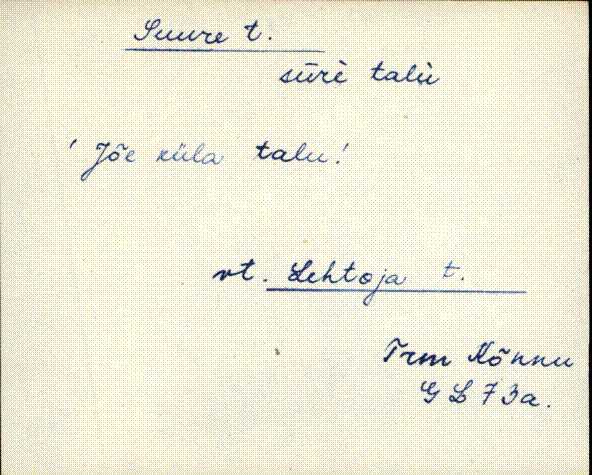 Suure t.
sūrè talù
' Jõe küla talu!
vt. Lehtoja t.
Trm Kõnnu
G L 73a.